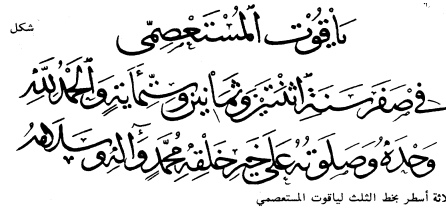 شكل
ياقوت المستعصمى
في صفر سنة اثنتين وثمانين وستمائة والحمد لله
وحده وصلوته على خير خلقه محمد وآله وسلامه
لاثة أسطر بخط الثلث لياقوت المستعصمي